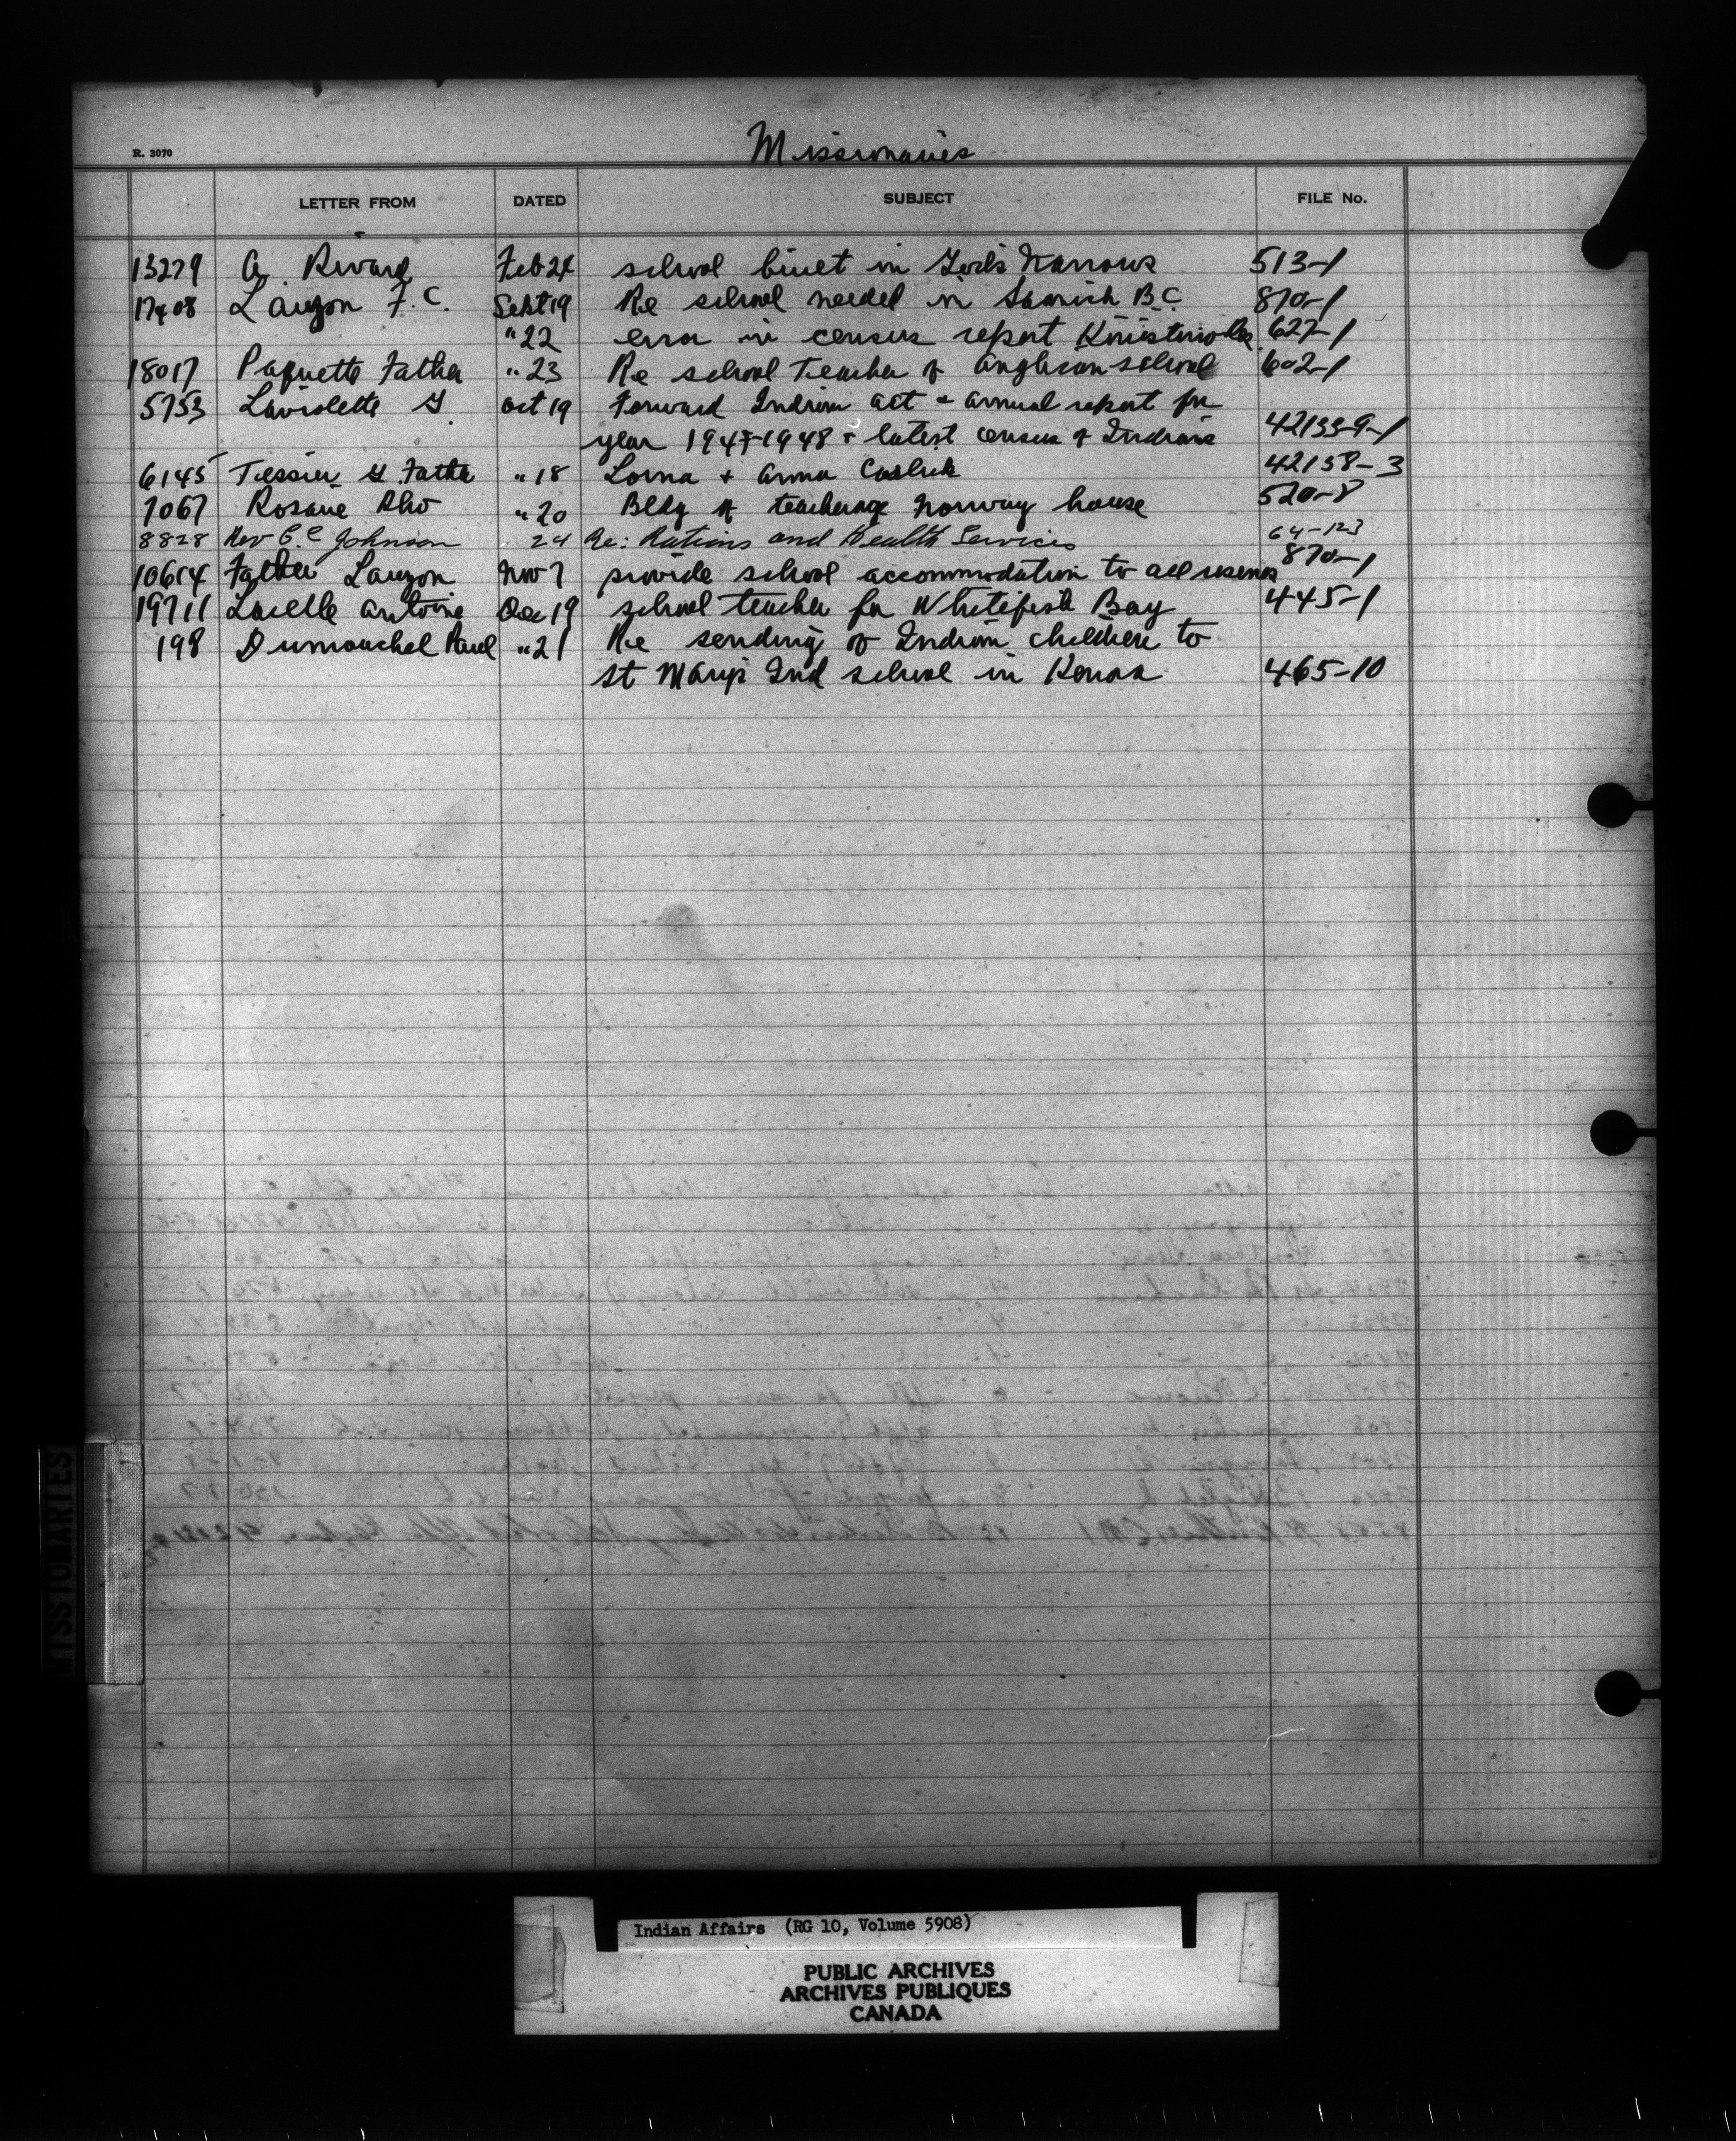 Missionaries
R. 3070
LETTER FROM DATED SUBJECT FILE No.
13279 A. Rivard Feb 24 school built in Narrows 513-1
17408 Lauzon F. C. Sept 19 Re school needed in Saanich B.C. 870-1
" 22 error in census report 627-1
18017 Paquette Father " 23 Re school Teacher of Anglican school 602-1
5753 Laviolette G Oct 19 Forward Indian act & annual report for
year 1947-1948 & latest census of Indians 42133-9-1
6145 Tessier G. Father " 18 Lorna & Anna 42158-3
7067 Rosarie " 20 Bldg of teacherage Norway house 520-8
8828 Rev C. C Johnson 24 Re: Rations and Health Services 64-123
10614 Father Lauzon Nov 7 provide school accommodation to all 870-1
19711 Antoine Dec 19 school teacher for Whitefish Bay 445-1
198 Dumouchel Paul " 21 Re sending of Indian children to
St Mary's Ind school in Kenora 465-10
MISSIONARIES
Indian Affairs (RG 10, Volume 5908)
PUBLIC ARCHIVES
ARCHIVES PUBLIQUES
CANADA